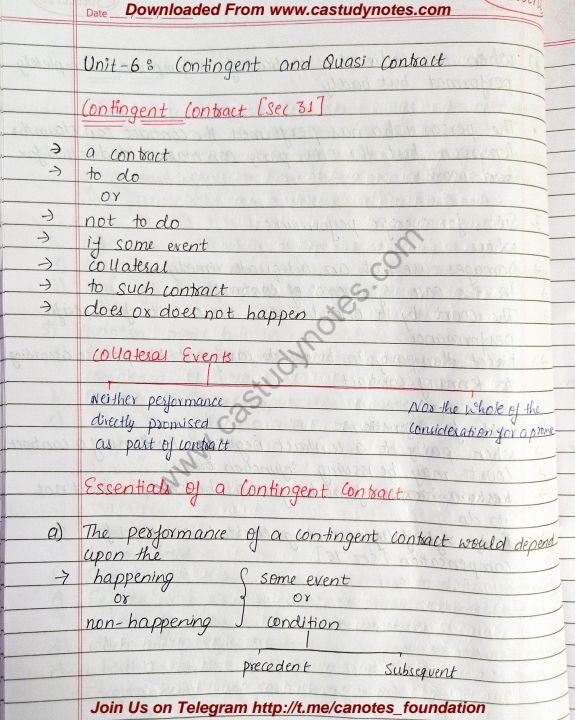 Downloaded From www.castudynotes.com
Date
Unit-6: Contingent and Quasi Contract
Contingent Contract [Sec 31]
→ a contract
→ to do
or
→ not to do
→ if some event
→ collateral
→ to such contract
→ does or does not happen
Collateral Events
Neither performance
directly promised
as part of contract
Nor the whole of the
consideration for a
Essentials of a Contingent Contract
a) The performance of a contingent contract would depend
upon the
→ happening
or
non-happening
some event
or
condition
precedent
subsequent
www.castudynotes.com
Join Us on Telegram http://t.me/canotes_foundation